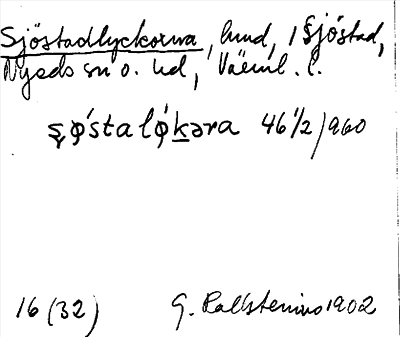 Sjöstadlyckorna, hmd, i Sjöstad,
Nyeds sn o. hd, Värml. l.
ʂǿstalǿkəra 46 1/2 / 960
16 (32) G. Kallstenius 1902